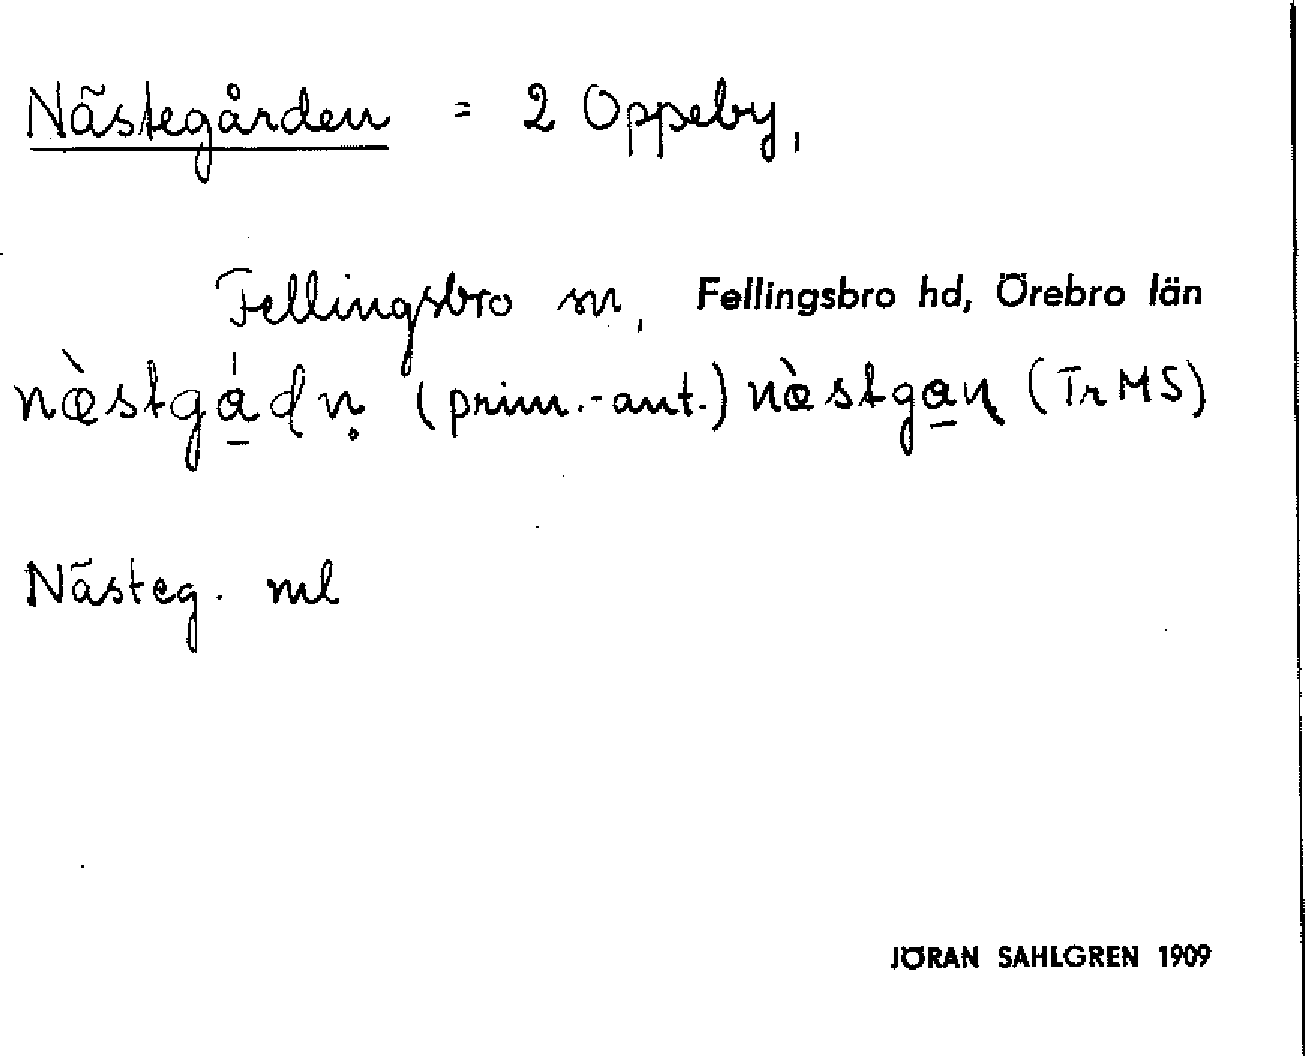 Nästegården = 2 Oppeby,
Fellingsbro sn, Fellingsbro hd, Örebro län
næ̀stgá̱dṇ (prim.-ant.) næ̀stga̱ɳ (Tr MS)
Nästeg. ml
JÖRAN SAHLGREN 1909